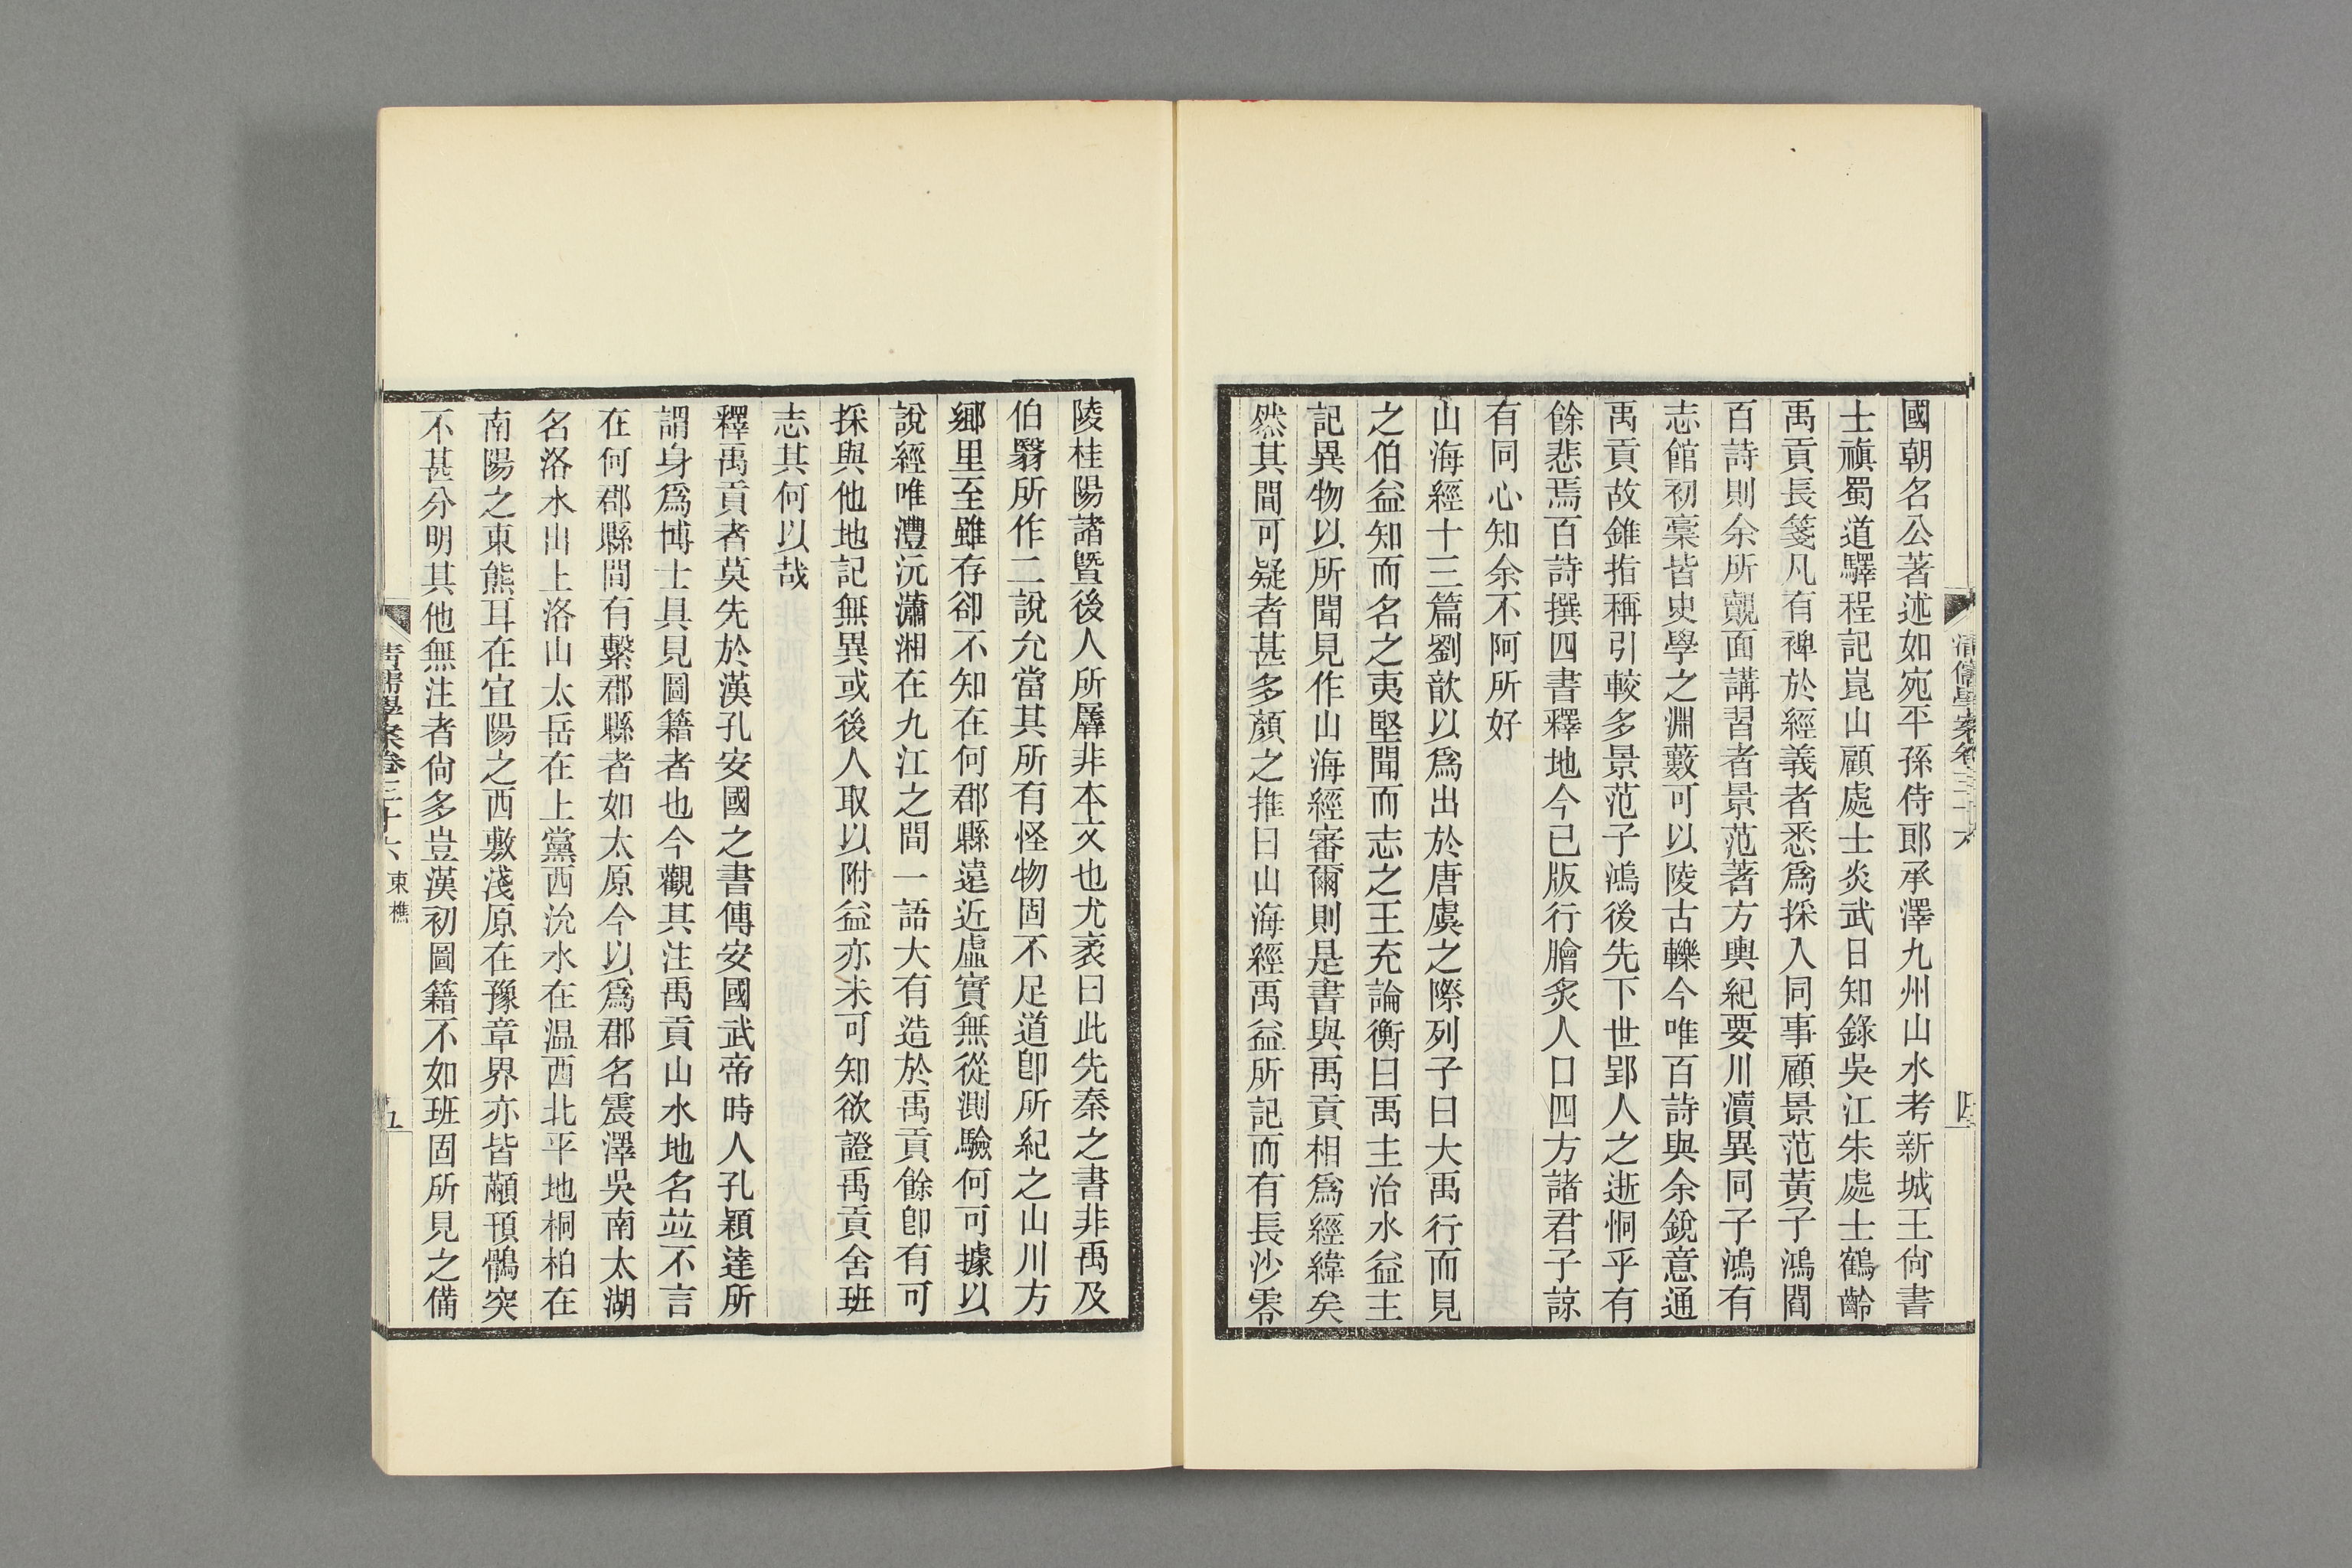 國朝名公著述如宛平孫侍郎承澤九州山水考新城王尚書
士禛蜀道驛程記崑山顧處士炎武日知錄吳江朱處士鶴齡
禹貢長箋凡有裨於經義者悉為採入同事顧景范黃子鴻閻
百詩則余所覿面講習者景范著方輿紀要川瀆異同子鴻有
志館初稾皆史學之淵藪可以陵古轢今唯百詩與余銳意通
禹貢故錐指稱引較多景范子鴻後先下世郢人之逝恫乎有
餘悲焉百詩撰四書釋地今已版行膾炙人口四方諸君子諒
有同心知余不阿所好
山海經十三篇劉歆以為出於唐虞之際列子曰大禹行而見
之伯益知而名之夷堅聞而志之王充論衡曰禹主治水益主
記異物以所聞見作山海經審爾則是書與禹貢相為經緯矣
然其間可疑者甚多顏之推曰山海經禹益所記而有長沙零
清儒學案卷三十六
四
陵桂陽諸暨後人所羼非本文也尤袤曰此先秦之書非禹及
伯翳所作二說允當其所有怪物固不足道卽所紀之山川方
鄉里至雖存卻不知在何郡縣遠近虛實無從測驗何可據以
說經唯澧沅瀟湘在九江之間一語大有造於禹貢餘卽有可
採與他地記無異或後人取以附益亦未可知欲證禹貢舍班
志其何以哉
釋禹貢者莫先於漢孔安國之書傳安國武帝時人孔穎達所
謂身為博士具見圖籍者也今觀其注禹貢山水地名並不言
在何郡縣間有繫郡縣者如太原今以為郡名震澤吳南太湖
名洛水出上洛山太岳在上黨西沇水在溫西北平地桐柏在
南陽之東熊耳在宜陽之西敷淺原在豫章界亦皆顢頇鶻突
不甚分明其他無注者尚多豈漢初圖籍不如班固所見之備
清儒學案卷三十六 東樵
五